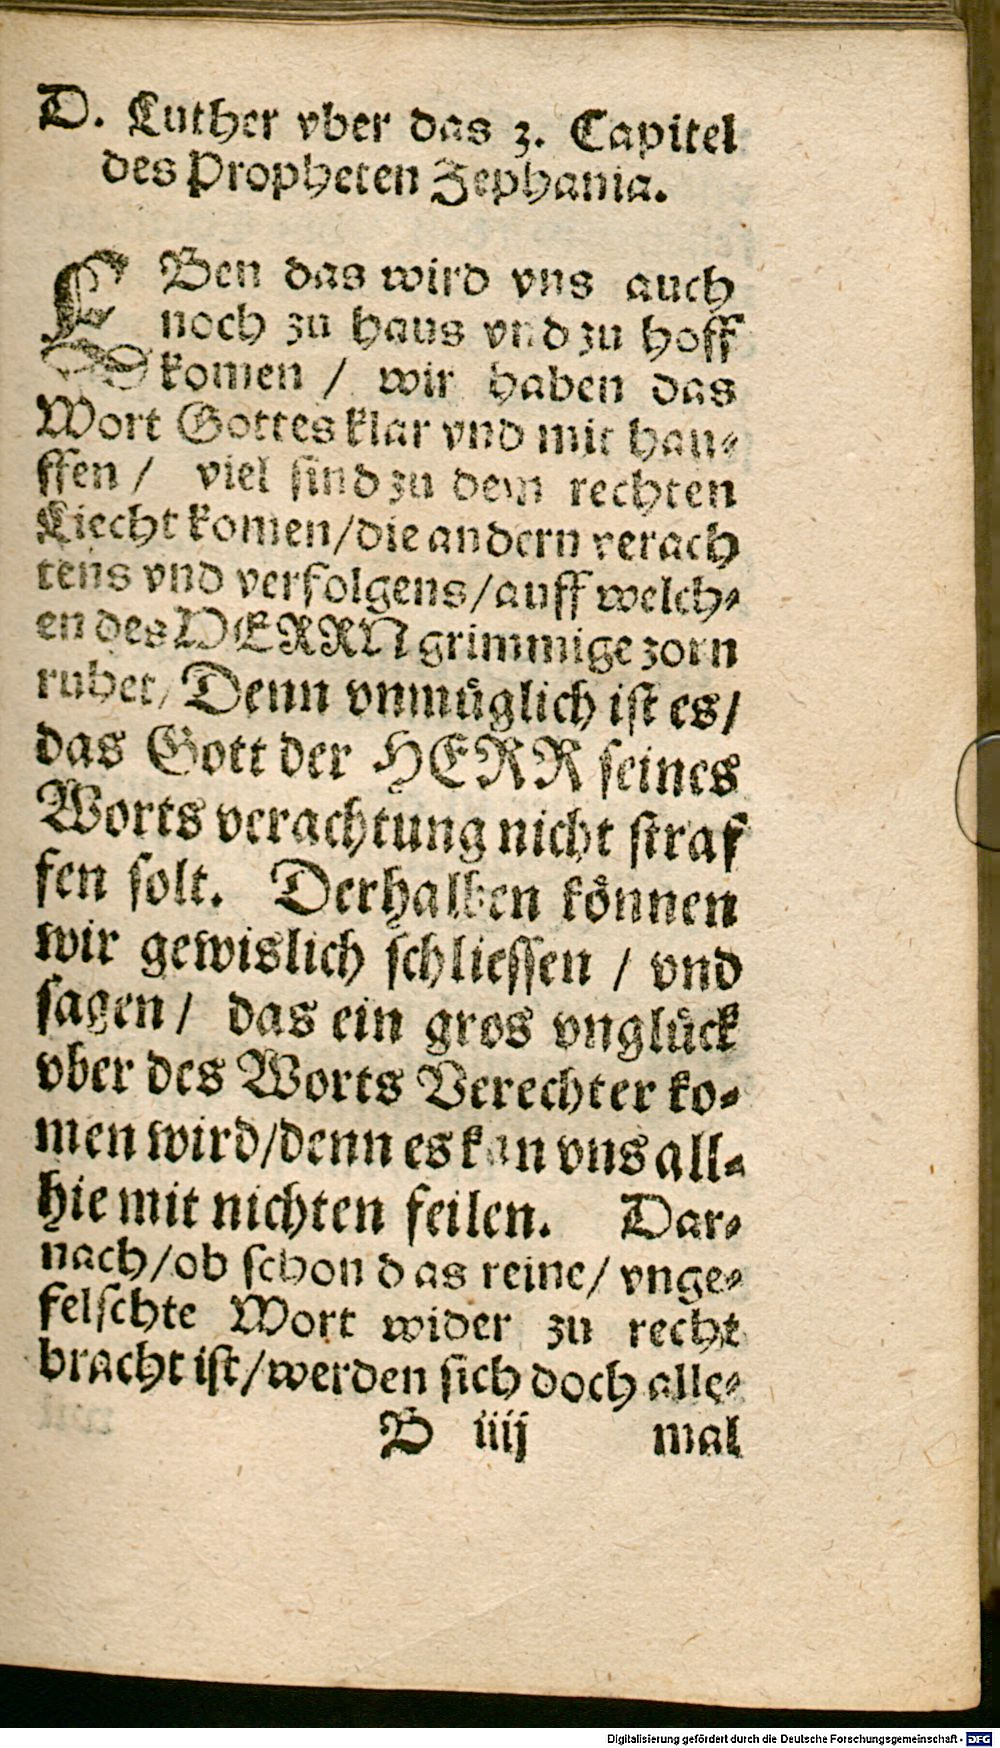 D. Luther vber das 3. Capitel
des Propheten Zephania.
EBen das wird vns auch
noch zu haus vnd zu hoff
komen / wir haben das
Wort Gottes klar vnd mit hau⸗
ffen / viel sind zu dem rechten
Liecht komen/die andern verach
tens vnd verfolgens/auff welch⸗
en des HERRN grimmige zorn
ruhet/ Denn vnmüglich ist es/
das Gott der HERR seines
Worts verachtung nicht straf
fen solt. Derhalben können
wir gewislich schliessen / vnd
sagen / das ein gros vnglück
vber des Worts Verechter ko⸗
men wird/denn es kan vns all⸗
hie mit nichten feilen. Dar⸗
nach/ob schon das reine/ vnge⸗
felschte Wort wider zu recht
bracht ist/werden sich doch alle⸗
B iiij mal
Digitalisierung gefördert durch die Deutsche Forschungsgemeinschaft - DFG